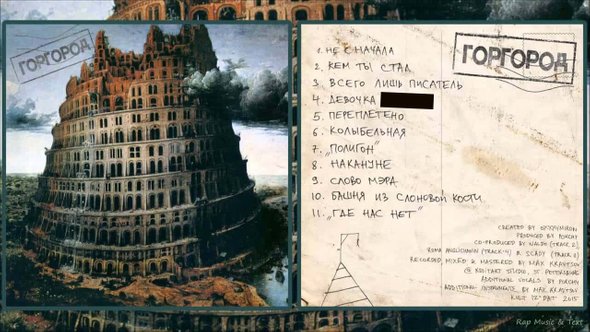 ГОРГОРОД
ГОРГОРОД
1. НЕ С НАЧАЛА
2. КЕМ ТЫ СТАЛ
3. ВСЕГО ЛИШЬ ПИСАТЕЛЬ
4. ДЕВОЧКА
5. ПЕРЕПЛЕТЕНО
6. КОЛЫБЕЛЬНАЯ
7. „ПОЛИГОН"
8. НАКАНУНЕ
9. СЛОВО МЭРА
10. БАШНЯ ИЗ СЛОНОВОЙ КОСТИ
11. „ГДЕ НАС НЕТ"
CREATED BY OXXXYMIRON
PRODUCED BY PORCHY
CO-PRODUCED BY (TRACK 2)
ROMA ENGLISHMAN (TRACK 4) & (TRACK
RECORDED MIXED & MASTERED BY MAX KRAVTSOV
@ STUDIO, ST PETERSBURG
ADDITIONAL VOCALS BY PORCHY
ADDITIONAL INSTRUMENTS BY MAX KRAVTSOV
2015
Rap Music & Text